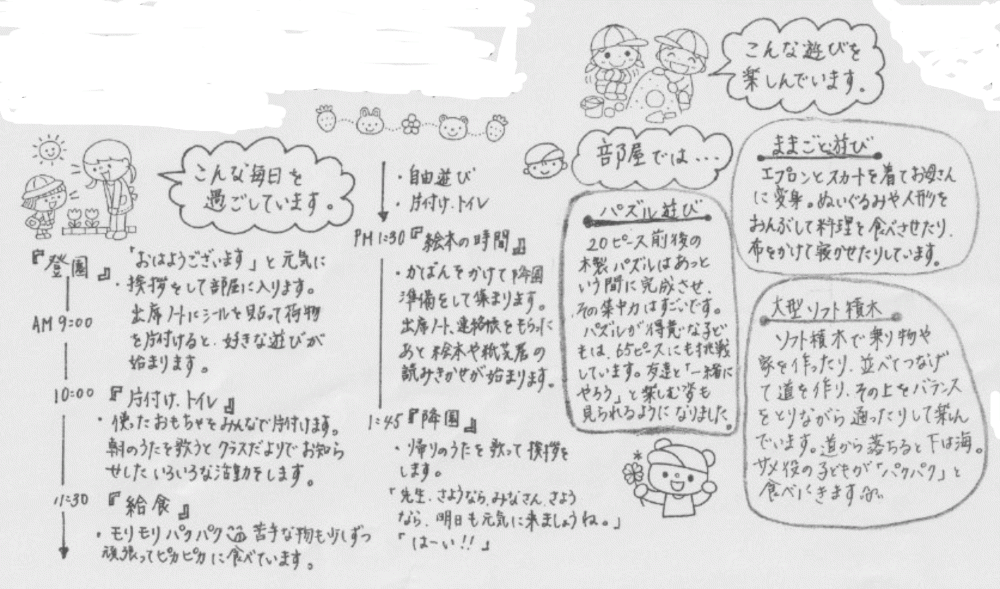 こんな毎日を
過ごしています。
『登園』
「おはようございます」と元気に
・挨拶をして部屋に入ります。
AM9:00
出席ノートにシールを貼って荷物
を片付けると、好きな遊びが
始まります。
10:00 『片付け、トイレ』
・使ったおもちゃをみんなで片付けます。
朝のうたを歌うとクラスだよりでお知ら
せしたいろいろな活動をします。
11:30 『給食』
・モリモリパクパク 苦手な物も少しずつ
頑張ってピカピカに食べています。
・自由遊び
・片付け、トイレ
PM1:30『絵本の時間』
・かばんをかけて降園
準備をして集まります。
出席ノート、連絡帳をもらった
あと絵本や紙芝居の
読みきかせが始まります。
1:45『降園』
・帰りのうたを歌って挨拶を
します。
「先生、さようなら、みなさん、さよう
なら、明日も元気に来ましょうね。」
「はーい!!」
こんな遊びを
楽しんでいます。
部屋では…
パズル遊び
20ピース前後の
木製パズルはあっと
いう間に完成させ、
その集中力はすごいです。
パズルが得意な子ど
もは、65ピースにも挑戦
しています。友達と「一緒に
やろう」と楽しむ姿も
見られるようになりました。
ままごと遊び
エプロンとスカートを着てお母さん
に変身。ぬいぐるみや人形を
おんぶして料理を食べさせたり、
布をかけて寝かせたりしています。
大型ソフト積木
ソフト積木で乗り物や
家を作ったり、並べてつなげ
て道を作り、その上をバランス
をとりながら通ったりして楽しん
でいます。道から落ちると下は海。
サメ役の子どもが「パクパク」と
食べにきます